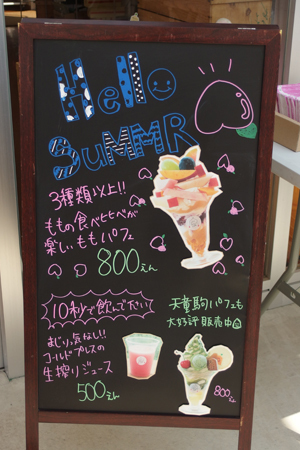 Hello
SuMMR
3種類以上!!
ももの食べ比べが
楽しいももパフェ
800えん
10秒で飲んでください
まじりっ気なし!!
コールドプレスの
生搾りジュース
500えん
天童駒パフェも
大好評販売中
800えん